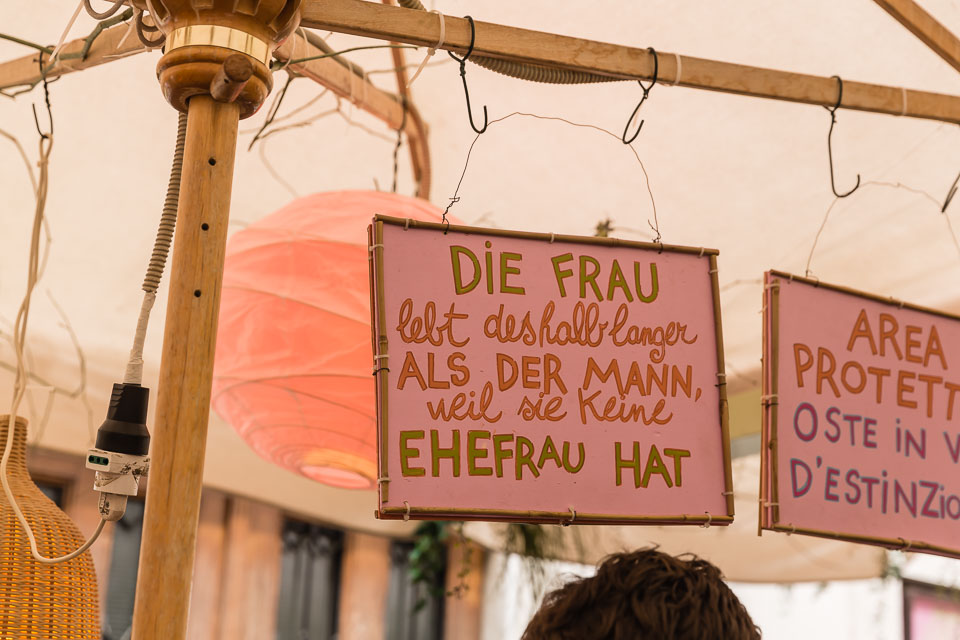 DiE FRAU
lebt deshalb langer
ALS DER MANN,
weil sie Keine
EHEFRAU HAT
AREA
PROTETT
OSTE iN V
D'ESTiNZio